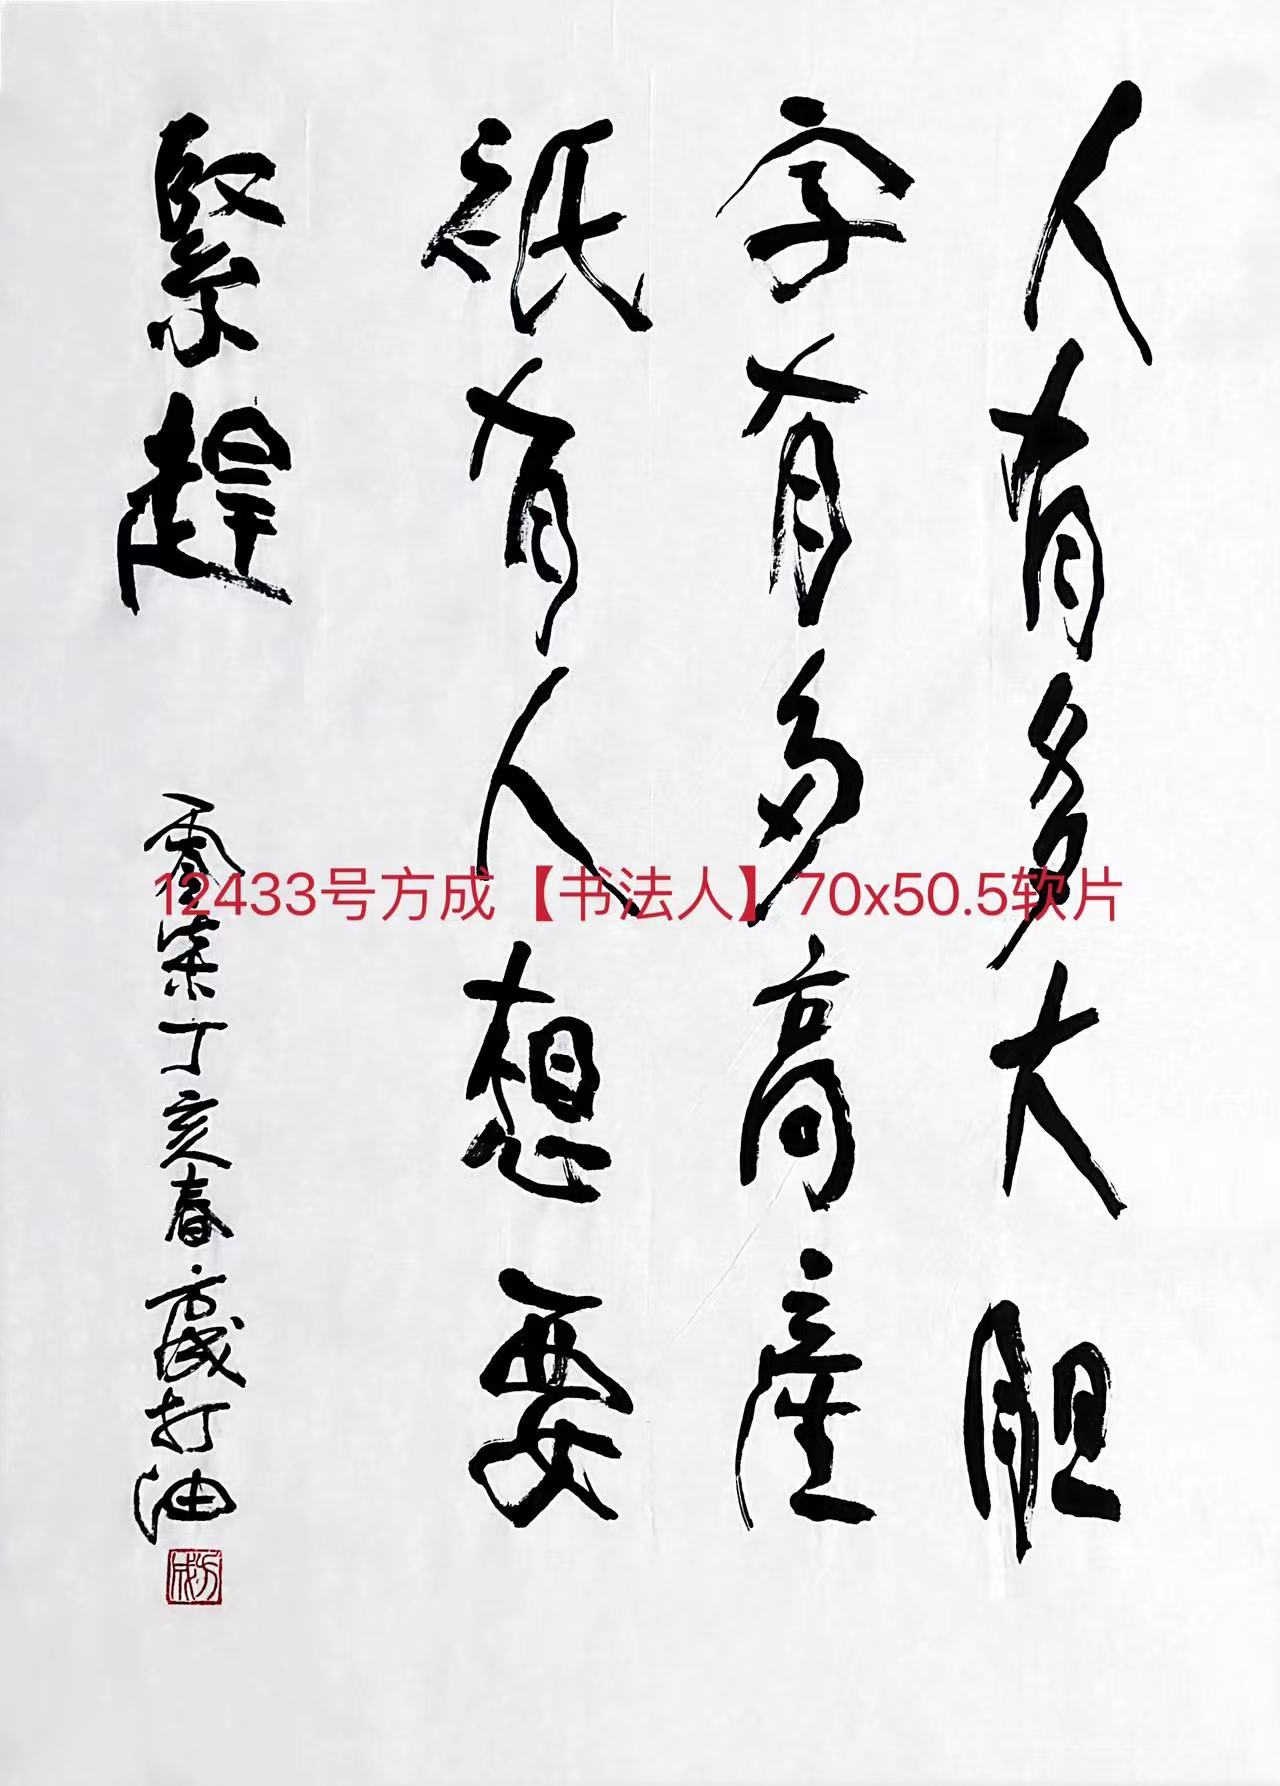 人有多大胆
字有多高產
祇有人想要
緊趕
丁亥春方成打油
方成
12433号方成【书法人】70x50.5软片